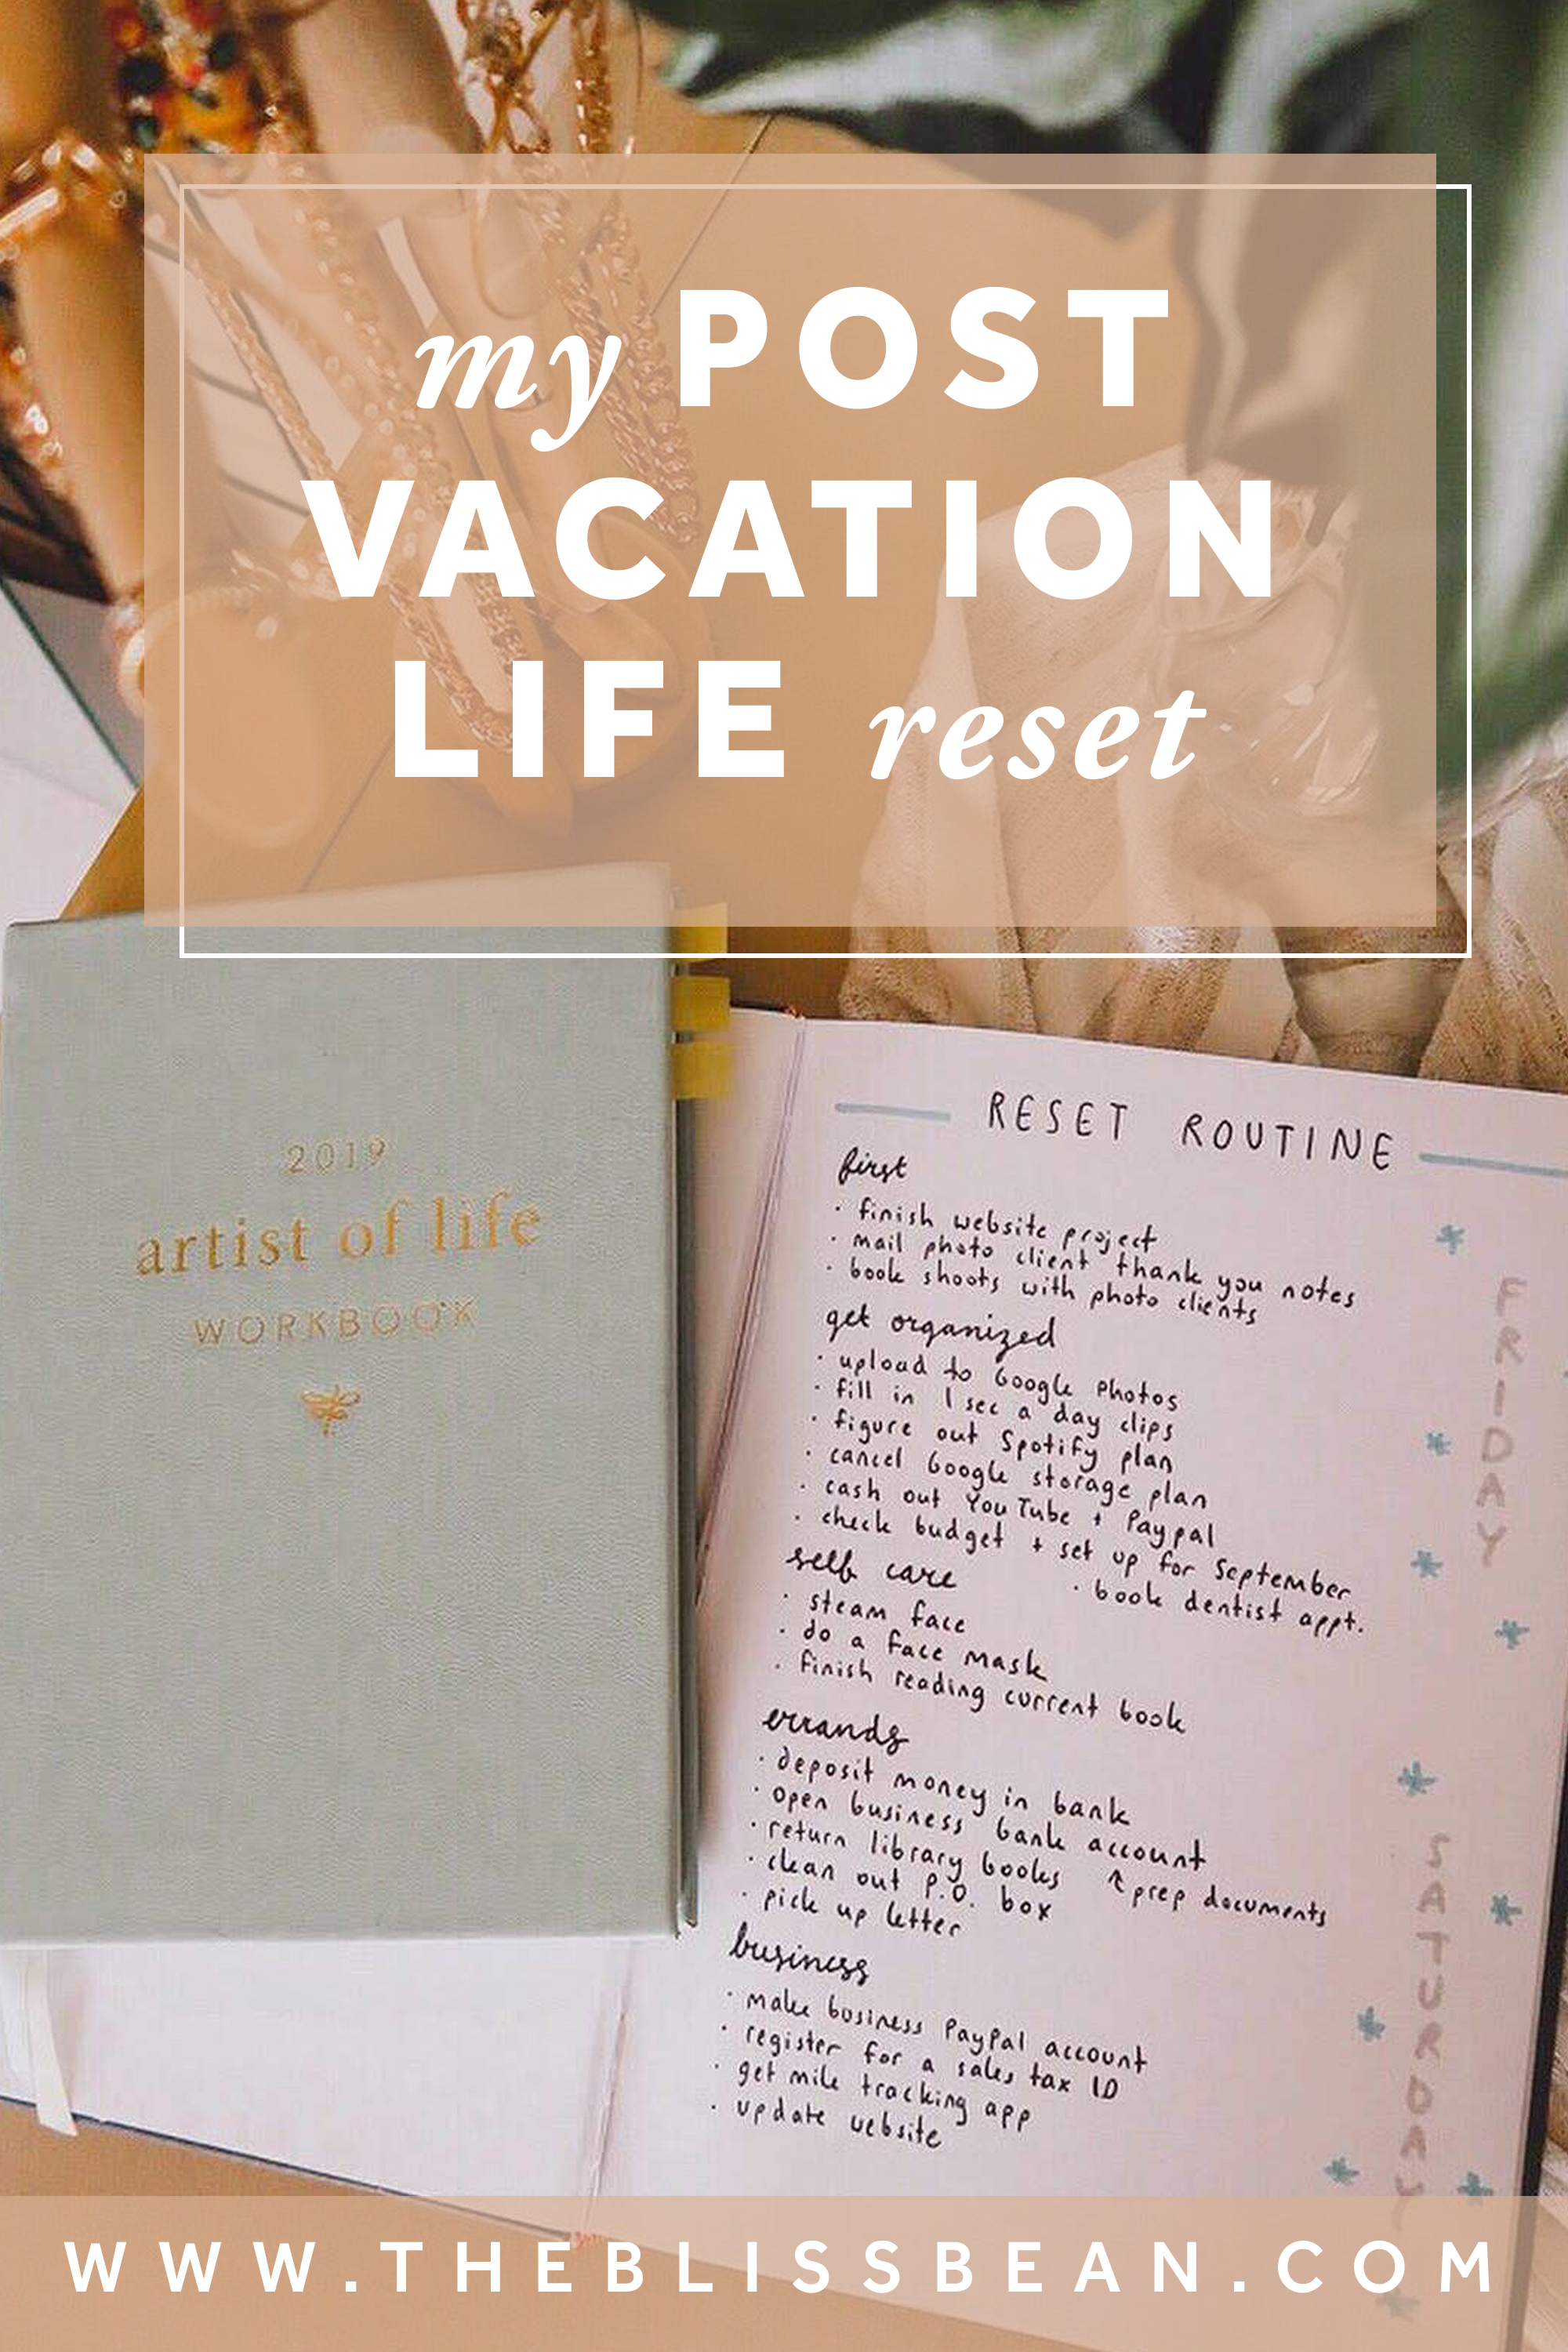 my POST
VACATION
LIFE reset
2019
artist of life
WORKBOOK
RESET ROUTINE
first
· finish website project
· mail photo client thank you notes
· book shoots with photo clients
get organized
· upload to Google Photos
· fill in 1 sec a day clips
· figure out Spotify plan
· cancel Google storage plan
· cash out YouTube + Paypal
· check budget + set up for September
· book dentist appt.
self care
· steam face
· do a face mask
· finish reading current book
errands
· deposit money in bank
· open business bank account
↑ prep documents
· return library books
· clean out P.O. box
· pick up letter
business
· make business PayPal account
· register for a sales tax ID
· get mile tracking app
· update website
FRIDAY
SATURDAY
WWW.THEBLISSBEAN.COM